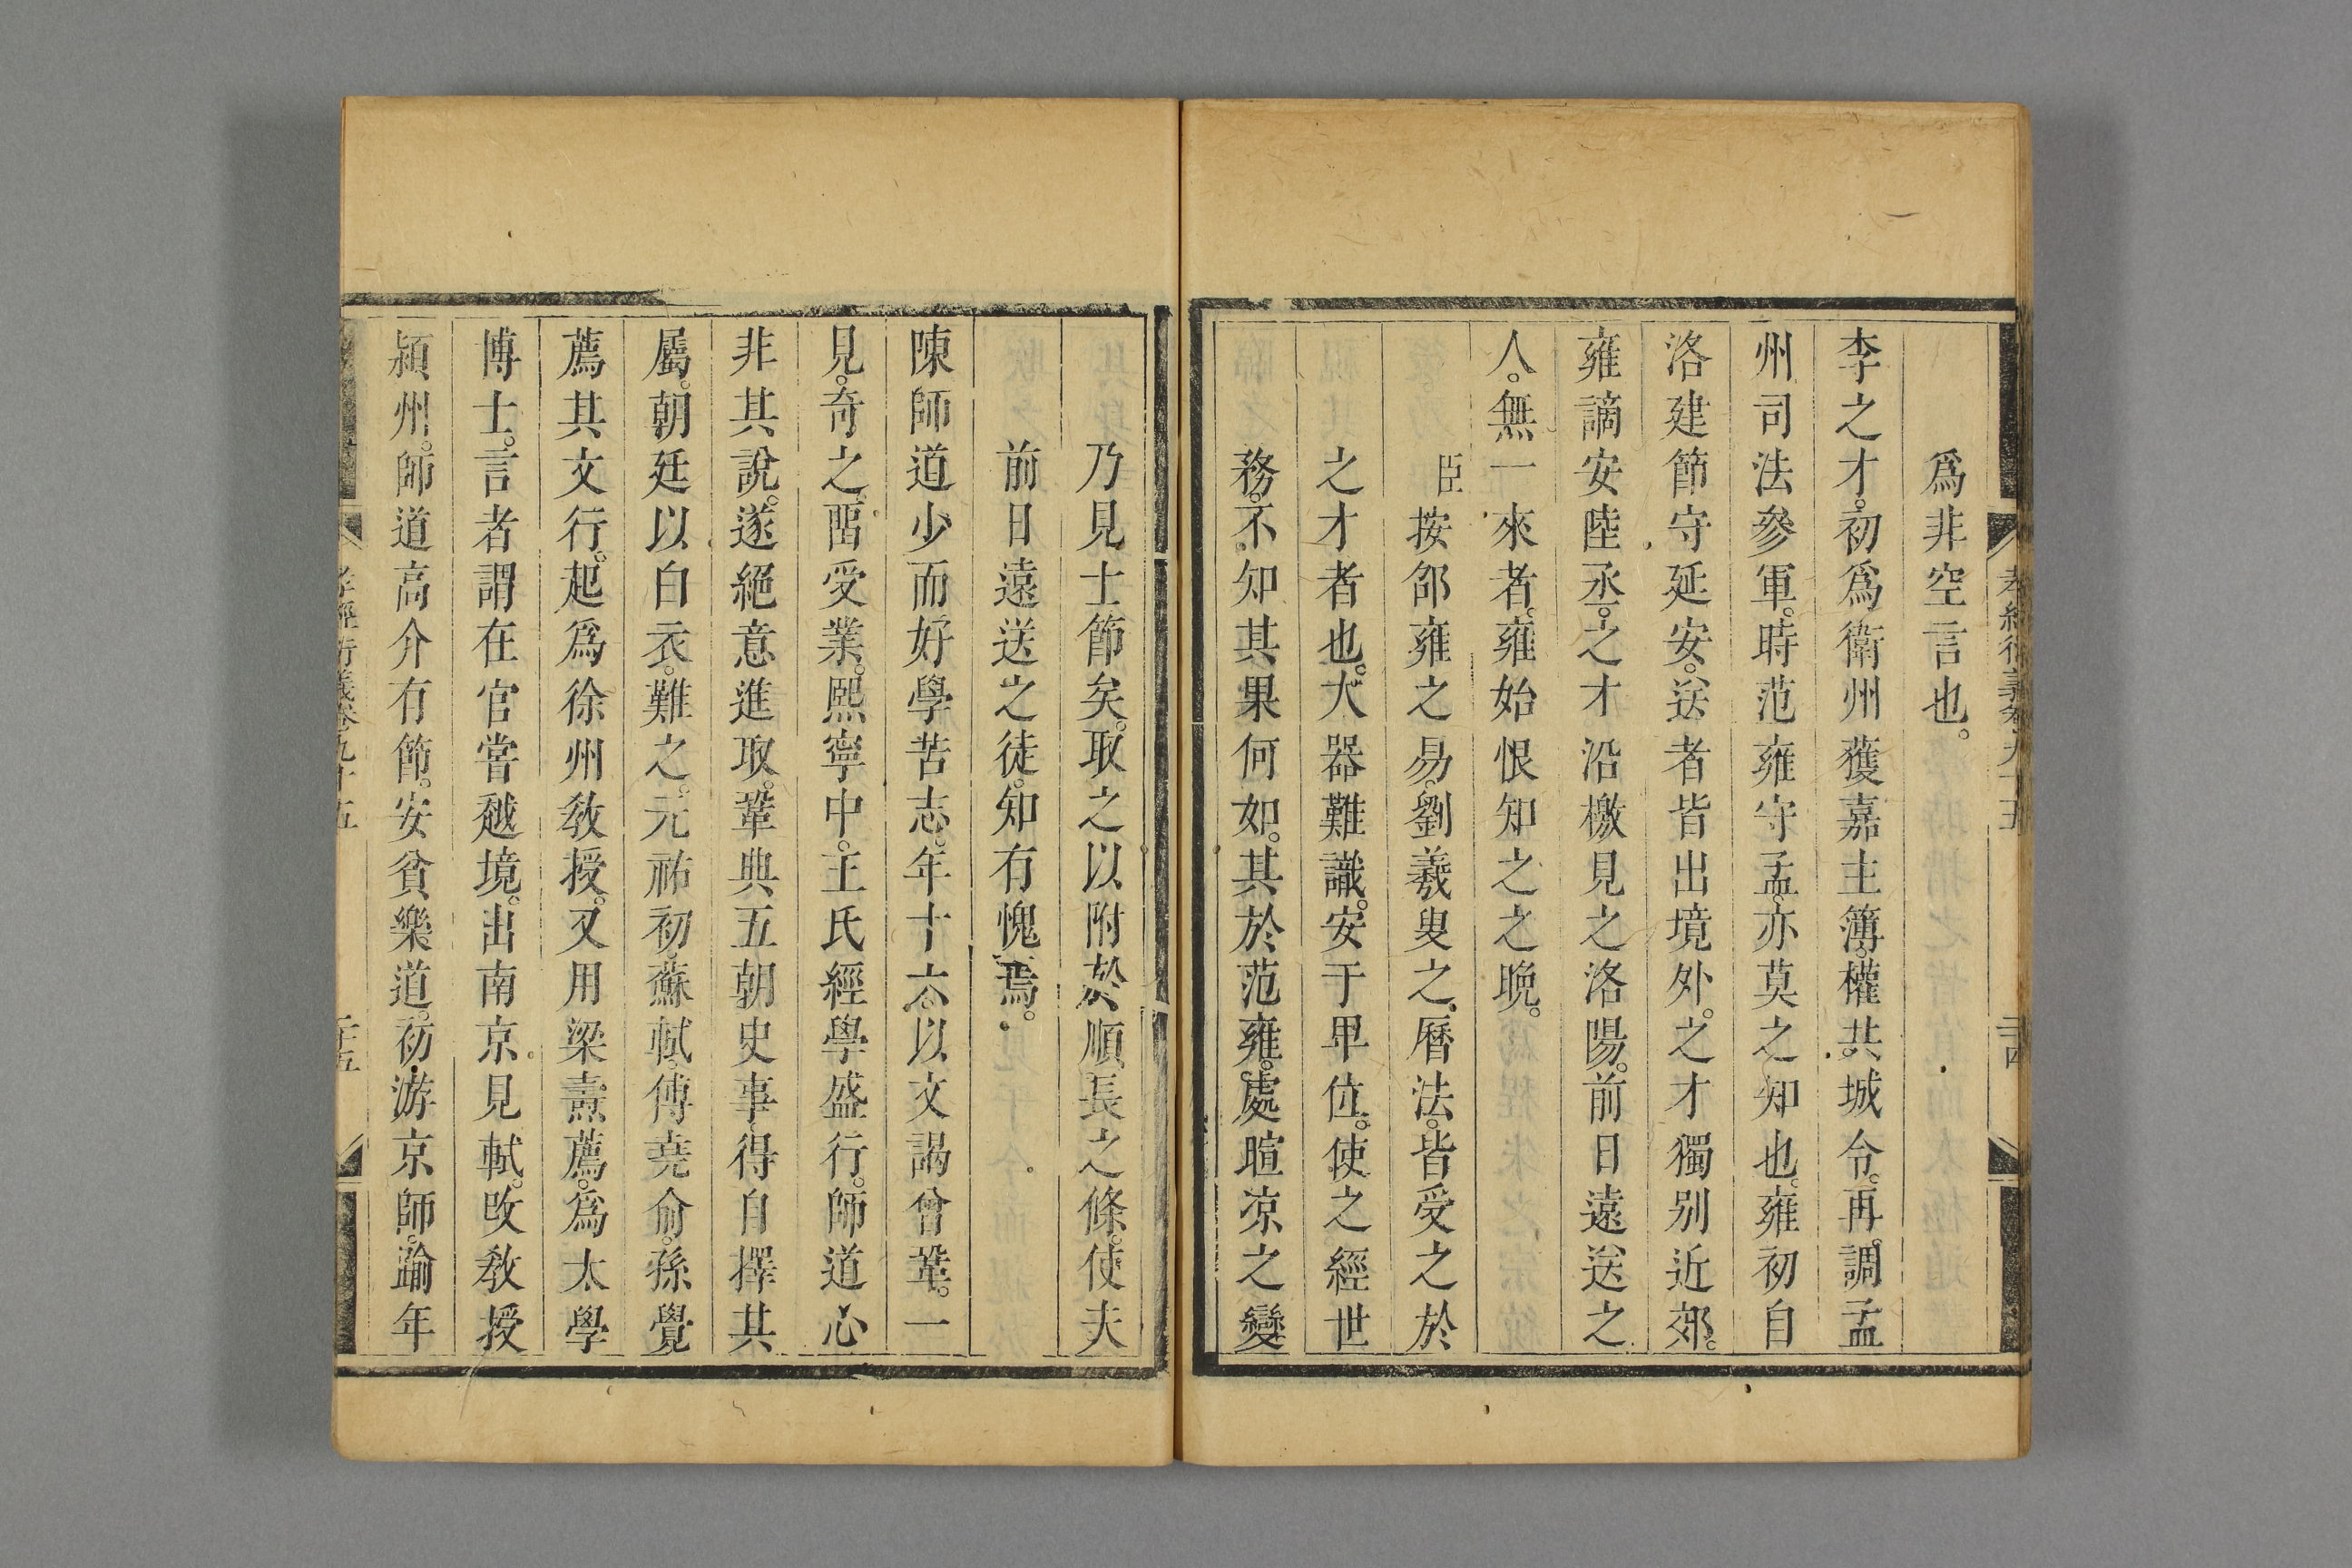 孝經衍義卷九十五
爲非空言也。
李之才。初爲衛州獲嘉主簿。權共城令。再調孟
州司法參軍。時范雍守孟。亦莫之知也。雍初自
洛建節守延安。送者皆出境外。之才獨别近郊。
雍謫安陸丞。之才沿檄見之洛陽。前日遠送之
人。無一來者。雍始恨知之之晚。
臣按邵雍之易。劉羲叟之曆法。皆受之於
之才者也。大器難識。安于卑位。使之經世
務。不知其果何如。其於范雍。處暄凉之變
乃見士節矣。取之以附於順長之條。使夫
前日遠送之徒。知有愧焉。
陳師道少而好學苦志。年十六。以文謁曾鞏。一
見。奇之。畱受業。熙寧中。王氏經學盛行。師道心
非其說。遂絕意進取。鞏典五朝史事。得自擇其
屬。朝廷以白衣。難之。元祐初。蘇軾。傅堯俞。孫覺
薦其文行。起爲徐州教授。又用梁燾薦。爲太學
博士。言者謂在官嘗越境。出南京見軾。改教授
潁州。師道高介有節。安貧樂道。初游京師。踰年
孝經衍義卷九十五